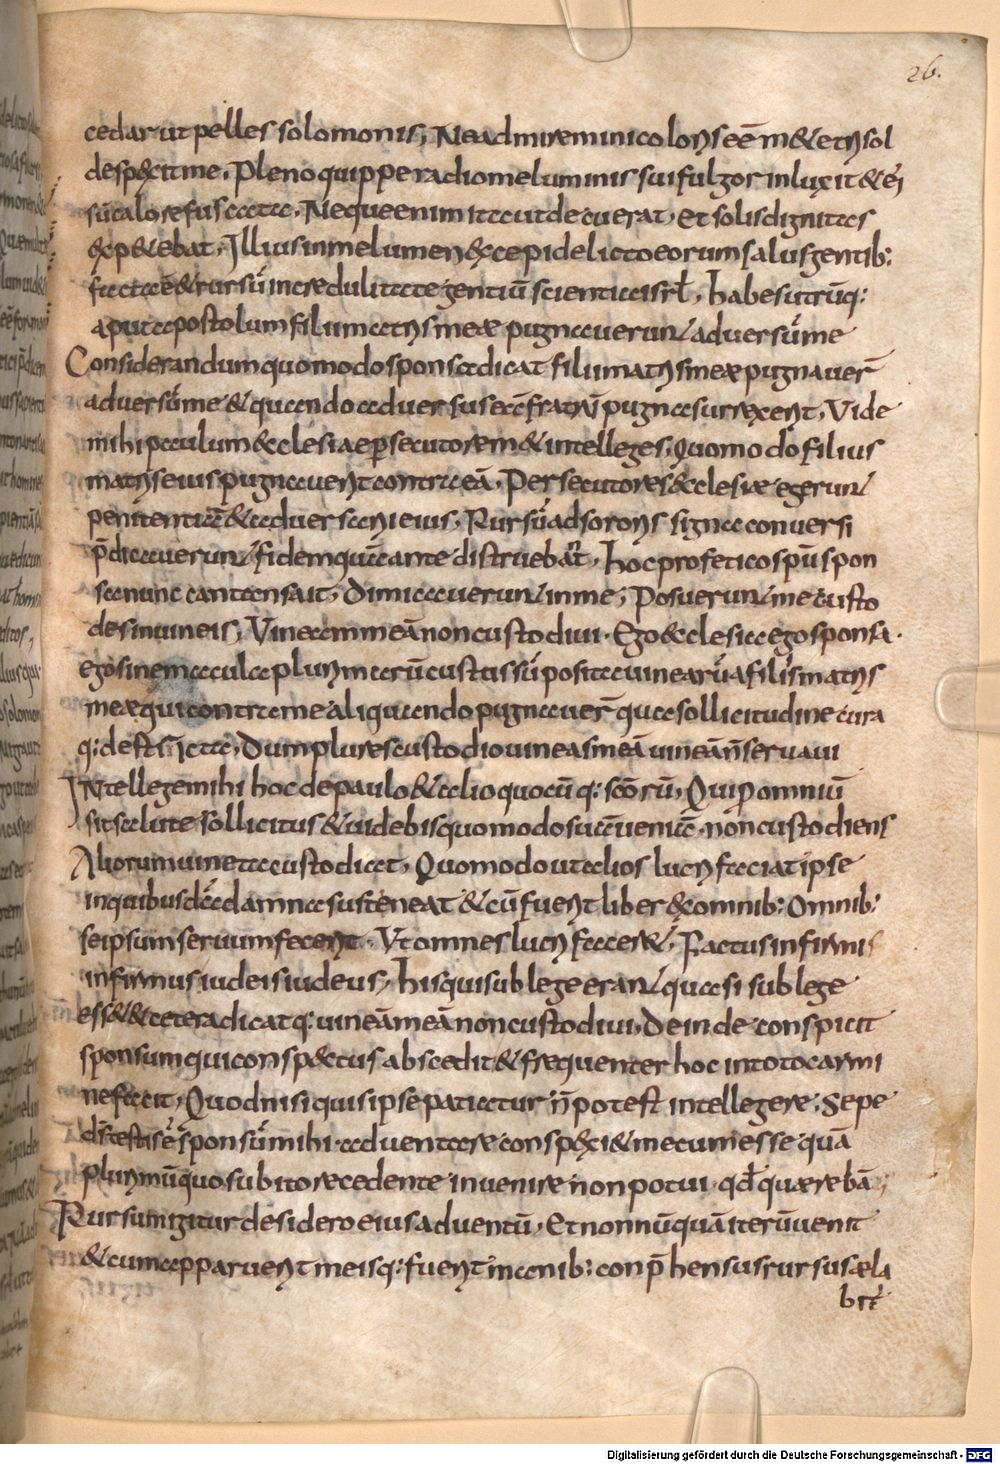 26.
cedar ut pelles solomonis, Ne admiremini coloris eē m& etris sol
despexit me, Pleno quippe radio me luminis sui fulgor inluxit & ei
su calore fuscata. Neque enim ita ut decuerat, et solis dignitas
exp&ebat, Illius in me lumen excepi delicto eorum salus gentib:
facta ē & rursū incredulitate gentiū scientia isrl, habes utrūq:
aput apostolum filii matris meæ pugnaverunt adversū me
Considerandum quomodo sponsa dicat filii matris meæ pugnaver̄
adversū me & quando adversus eā fratrū pugna surrexerit, Vide
mihi paulum ecclesiæ p̱secutorem & intelleges, quomodo filius
matris eius pugnaverit contra eā, Persecutores ecclesiæ egerunt
penitentiā & adversarii eius, Rursū ad sororis signa conversi
p̄dicaverunt fidem quā ante distruebāt, hoc profetico sp̄u spon
sa nunc cantans ait, Dimicaverunt in me, Posuerunt me custo
dem in vineis, Vineam meā non custodivi. Ego ecclesia ego sponsa.
ego sine macula plurimarū custus sū posita vinearū a filiis matris
meæ qui contra me aliquando pugnaver̄ qua sollicitudine cura
q: destricta, Dum plures custodio vineas meā vineā n̄ servavi
Intellege mihi hoc de paulo & alio quocū q: scōrū, Qui p̱ omniū
sit salute sollicitus & videbis quomodo suā vineā non custodiens
Aliorum vinetta custodiat, Quomodo ut alios lucri faciat ipse
in quibusdā damna susteneat & cū fuerit liber ex omnib: Omnib:
se ipsum servum fecerit, Ut omnes lucri facer&, Factus infirmis
infirmus iudeis iudeus, his qui sub lege erant quasi sub lege
ess& & cetera dicatq: vineā meā non custodivi, Deinde conspicit
sponsum qui conspectus abscedit & frequenter hoc in toto carmi
ne facit, Quod nisi quis ipse patiatur n̄ potest intellegere. Sepe
ds̄ testis ē sponsū mihi adventare conspexi & mecum esse quā
plurimū quo subito recedente invenire non potui qd̄ quærebā,
Rursum igitur desidero eius adventū, Et nonnūquā iterū venit
& cum apparuerit meisq: fuerit manib: conp̄hensus rursus ela
bit̄
Digitalisierung gefördert durch die Deutsche Forschungsgemeinschaft - DFG